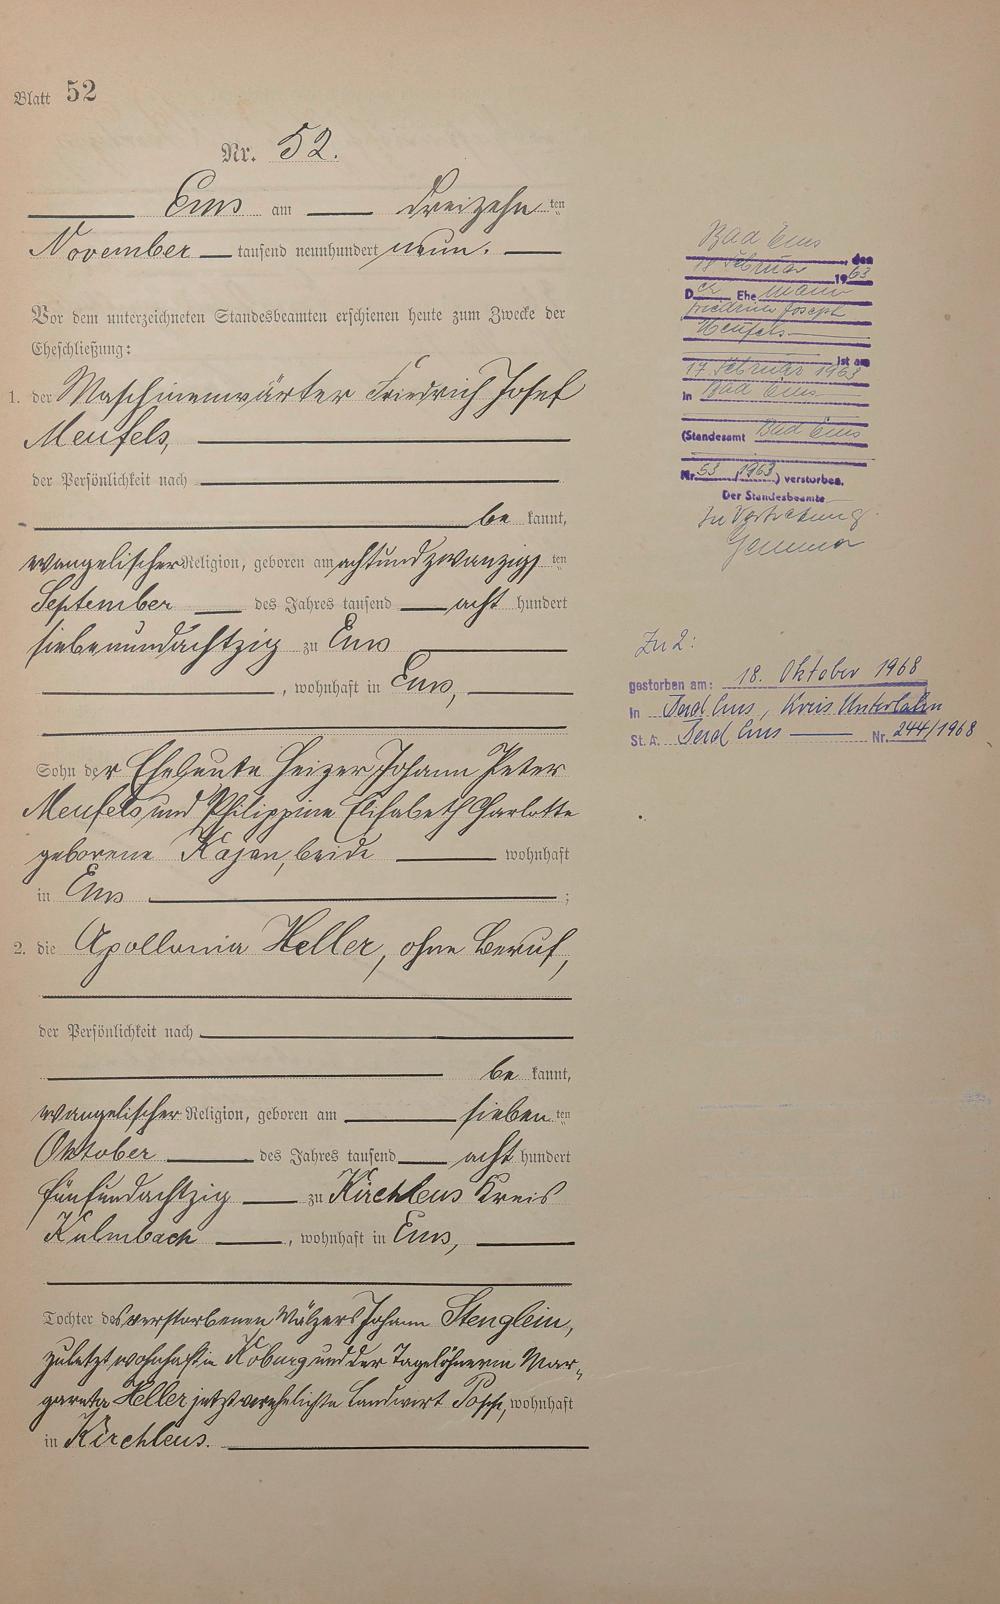 Blatt 52
Nr. 52.
Ems am dreizehnten
November tausend neunhundert neun.
Vor dem unterzeichneten Standesbeamten erschienen heute zum Zwecke der
Eheschließung:
1. der Maschinenwärter Friedrich Josef
Meufels,
der Persönlichkeit nach
bekannt,
evangelischer Religion, geboren am achtundzwanzigsten
September des Jahres tausend acht hundert
siebenundachtzig zu Ems
, wohnhaft in Ems,
Sohn der Eheleute Heizer Johann Peter
Meufels und Philippine Elisabeth Charlotte
geborene Kajan, beide wohnhaft
in Ems ;
2. die Apollonia Heller, ohne Beruf,
der Persönlichkeit nach
bekannt,
evangelischer Religion, geboren am siebenten
Oktober des Jahres tausend acht hundert
fünfundachtzig zu Kirchleus Kreis
Kulmbach , wohnhaft in Ems,
Tochter des verstorbenen Mälzers Johann Stenglein,
zuletzt wohnhaft in Koburg und der Tagelöhnerin Mar-
gareta Heller jetzt verehelichte Landwirt, wohnhaft
in Kirchleus.
Bad Ems, den
18 Februar 1963
Der Ehemann
Friedrich Joseph
Meufels
ist am
17 Februar 1963
in Bad Ems
(Standesamt Bad Ems
Nr. 53/1963) verstorben.
Der Standesbeamte
In Vertretung
Zu 2:
gestorben am: 18. Oktober 1968
in Bad Ems, Kreis Unterlahn
St. A. Bad Ems Nr. 244/1968